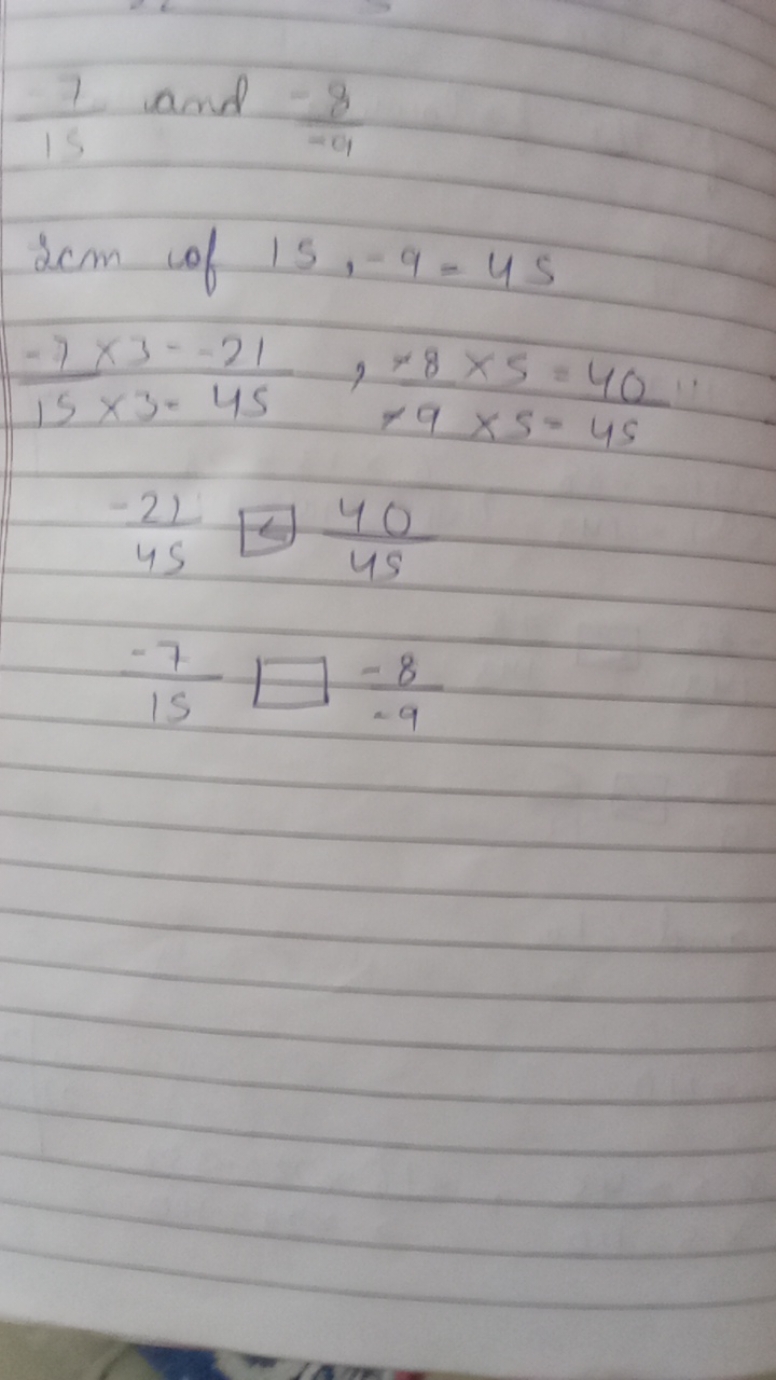 -7/15 and -8/-9
lcm of 15, -9 = 45
-7 × 3 = -21 / 15 × 3 = 45 , -8 × 5 = 40 / -9 × 5 = 45
-21/45 < 40/45
-7/15 □ -8/-9